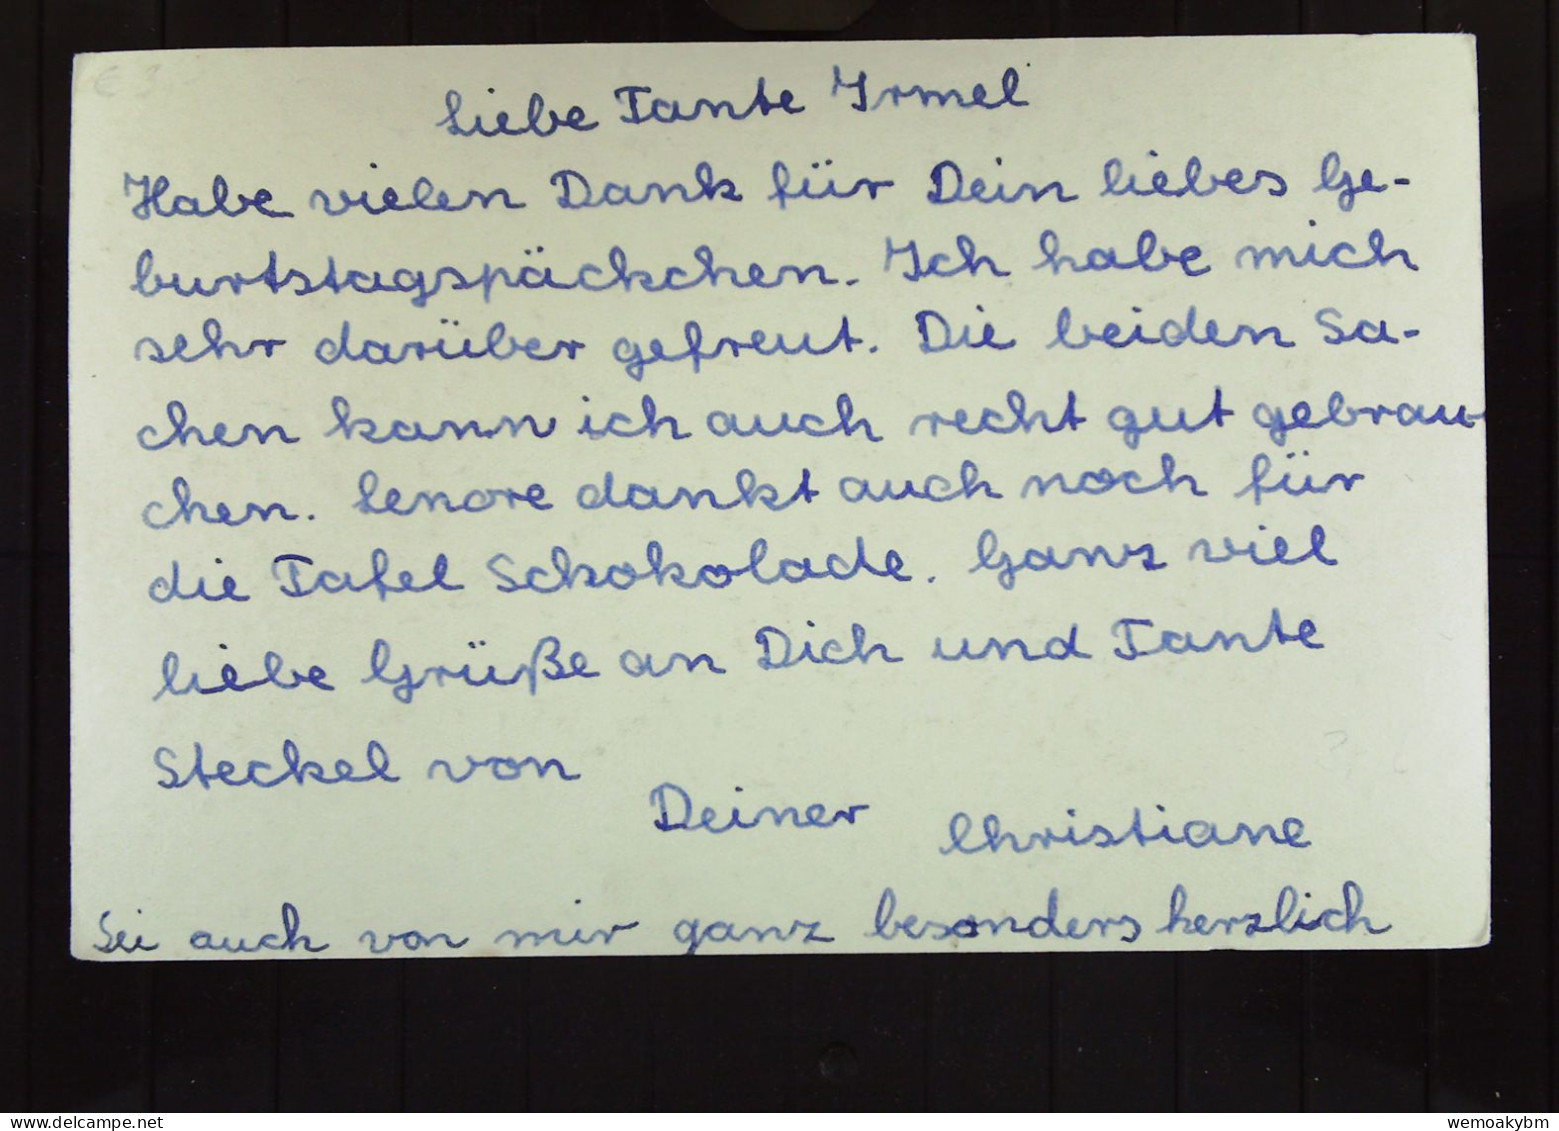 € 3.
Liebe Tante Irmel
Habe vielen Dank für Dein liebes Ge-
burtstagspäckchen. Ich habe mich
sehr darüber gefreut. Die beiden Sa-
chen kann ich auch recht gut gebrau-
chen. Lenore dankt auch noch für
die Tafel Schokolade. Ganz viel
liebe Grüße an Dich und Tante
Steckel von
Deiner Christiane
Sei auch von mir ganz besonders herzlich
wemoakybm